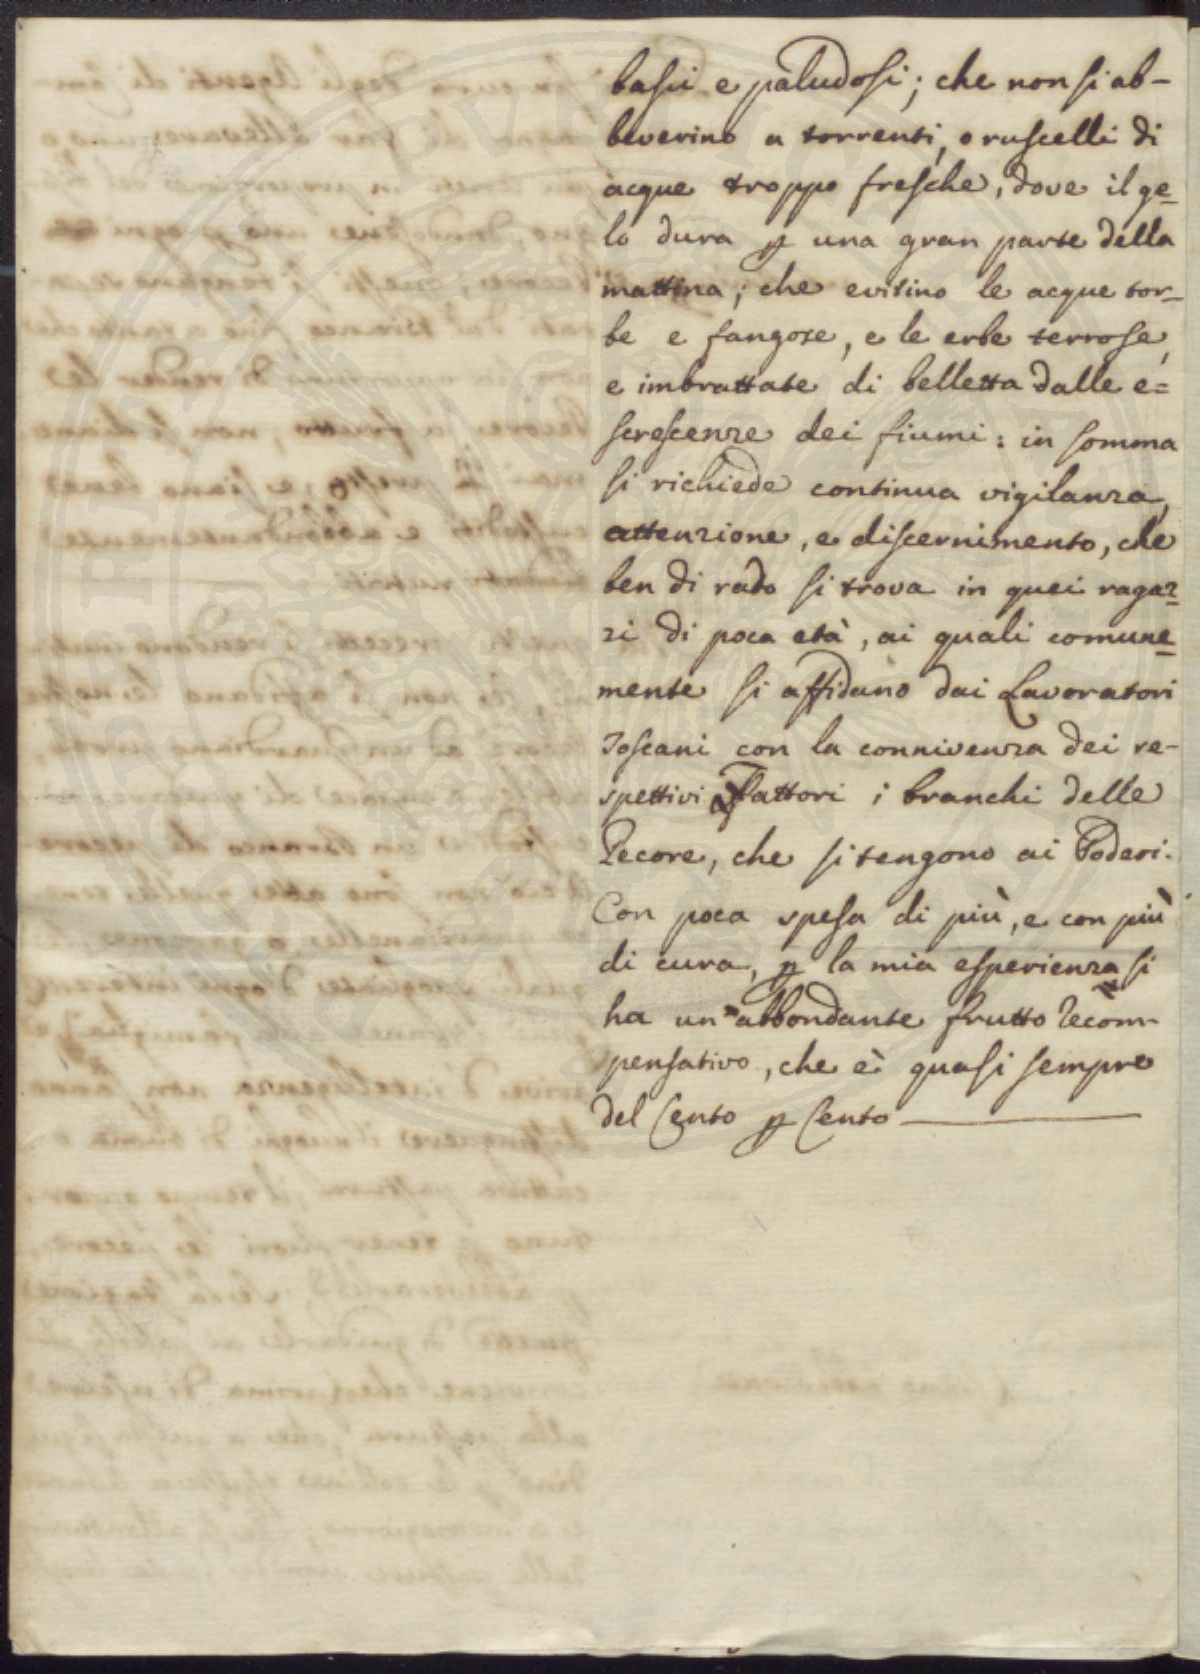 bassi e paludosi; che non si ab-
beverino a torrenti, o ruscelli di
acque troppo fresche, dove il ge-
lo dura p una gran parte della
mattina; che evitino le acque tor-
be e fangose, e le erbe terrose,
e imbrattate di belletta dalle e=
screscenze dei fiumi: in somma
si richiede continua vigilanza,
attenzione, e discernimento, che
ben di rado si trova in quei ragaz-
zi di poca età, ai quali comune-
mente si affidano dai Lavoratori
Toscani con la connivenza dei re-
spettivi Fattori i branchi delle
Pecore, che si tengono ai Poderi.
Con poca spesa di più, e con più
di cura, p la mia esperienza si
ha un abbondante frutto recom-
pensativo, che è quasi sempre
del Cento p Cento